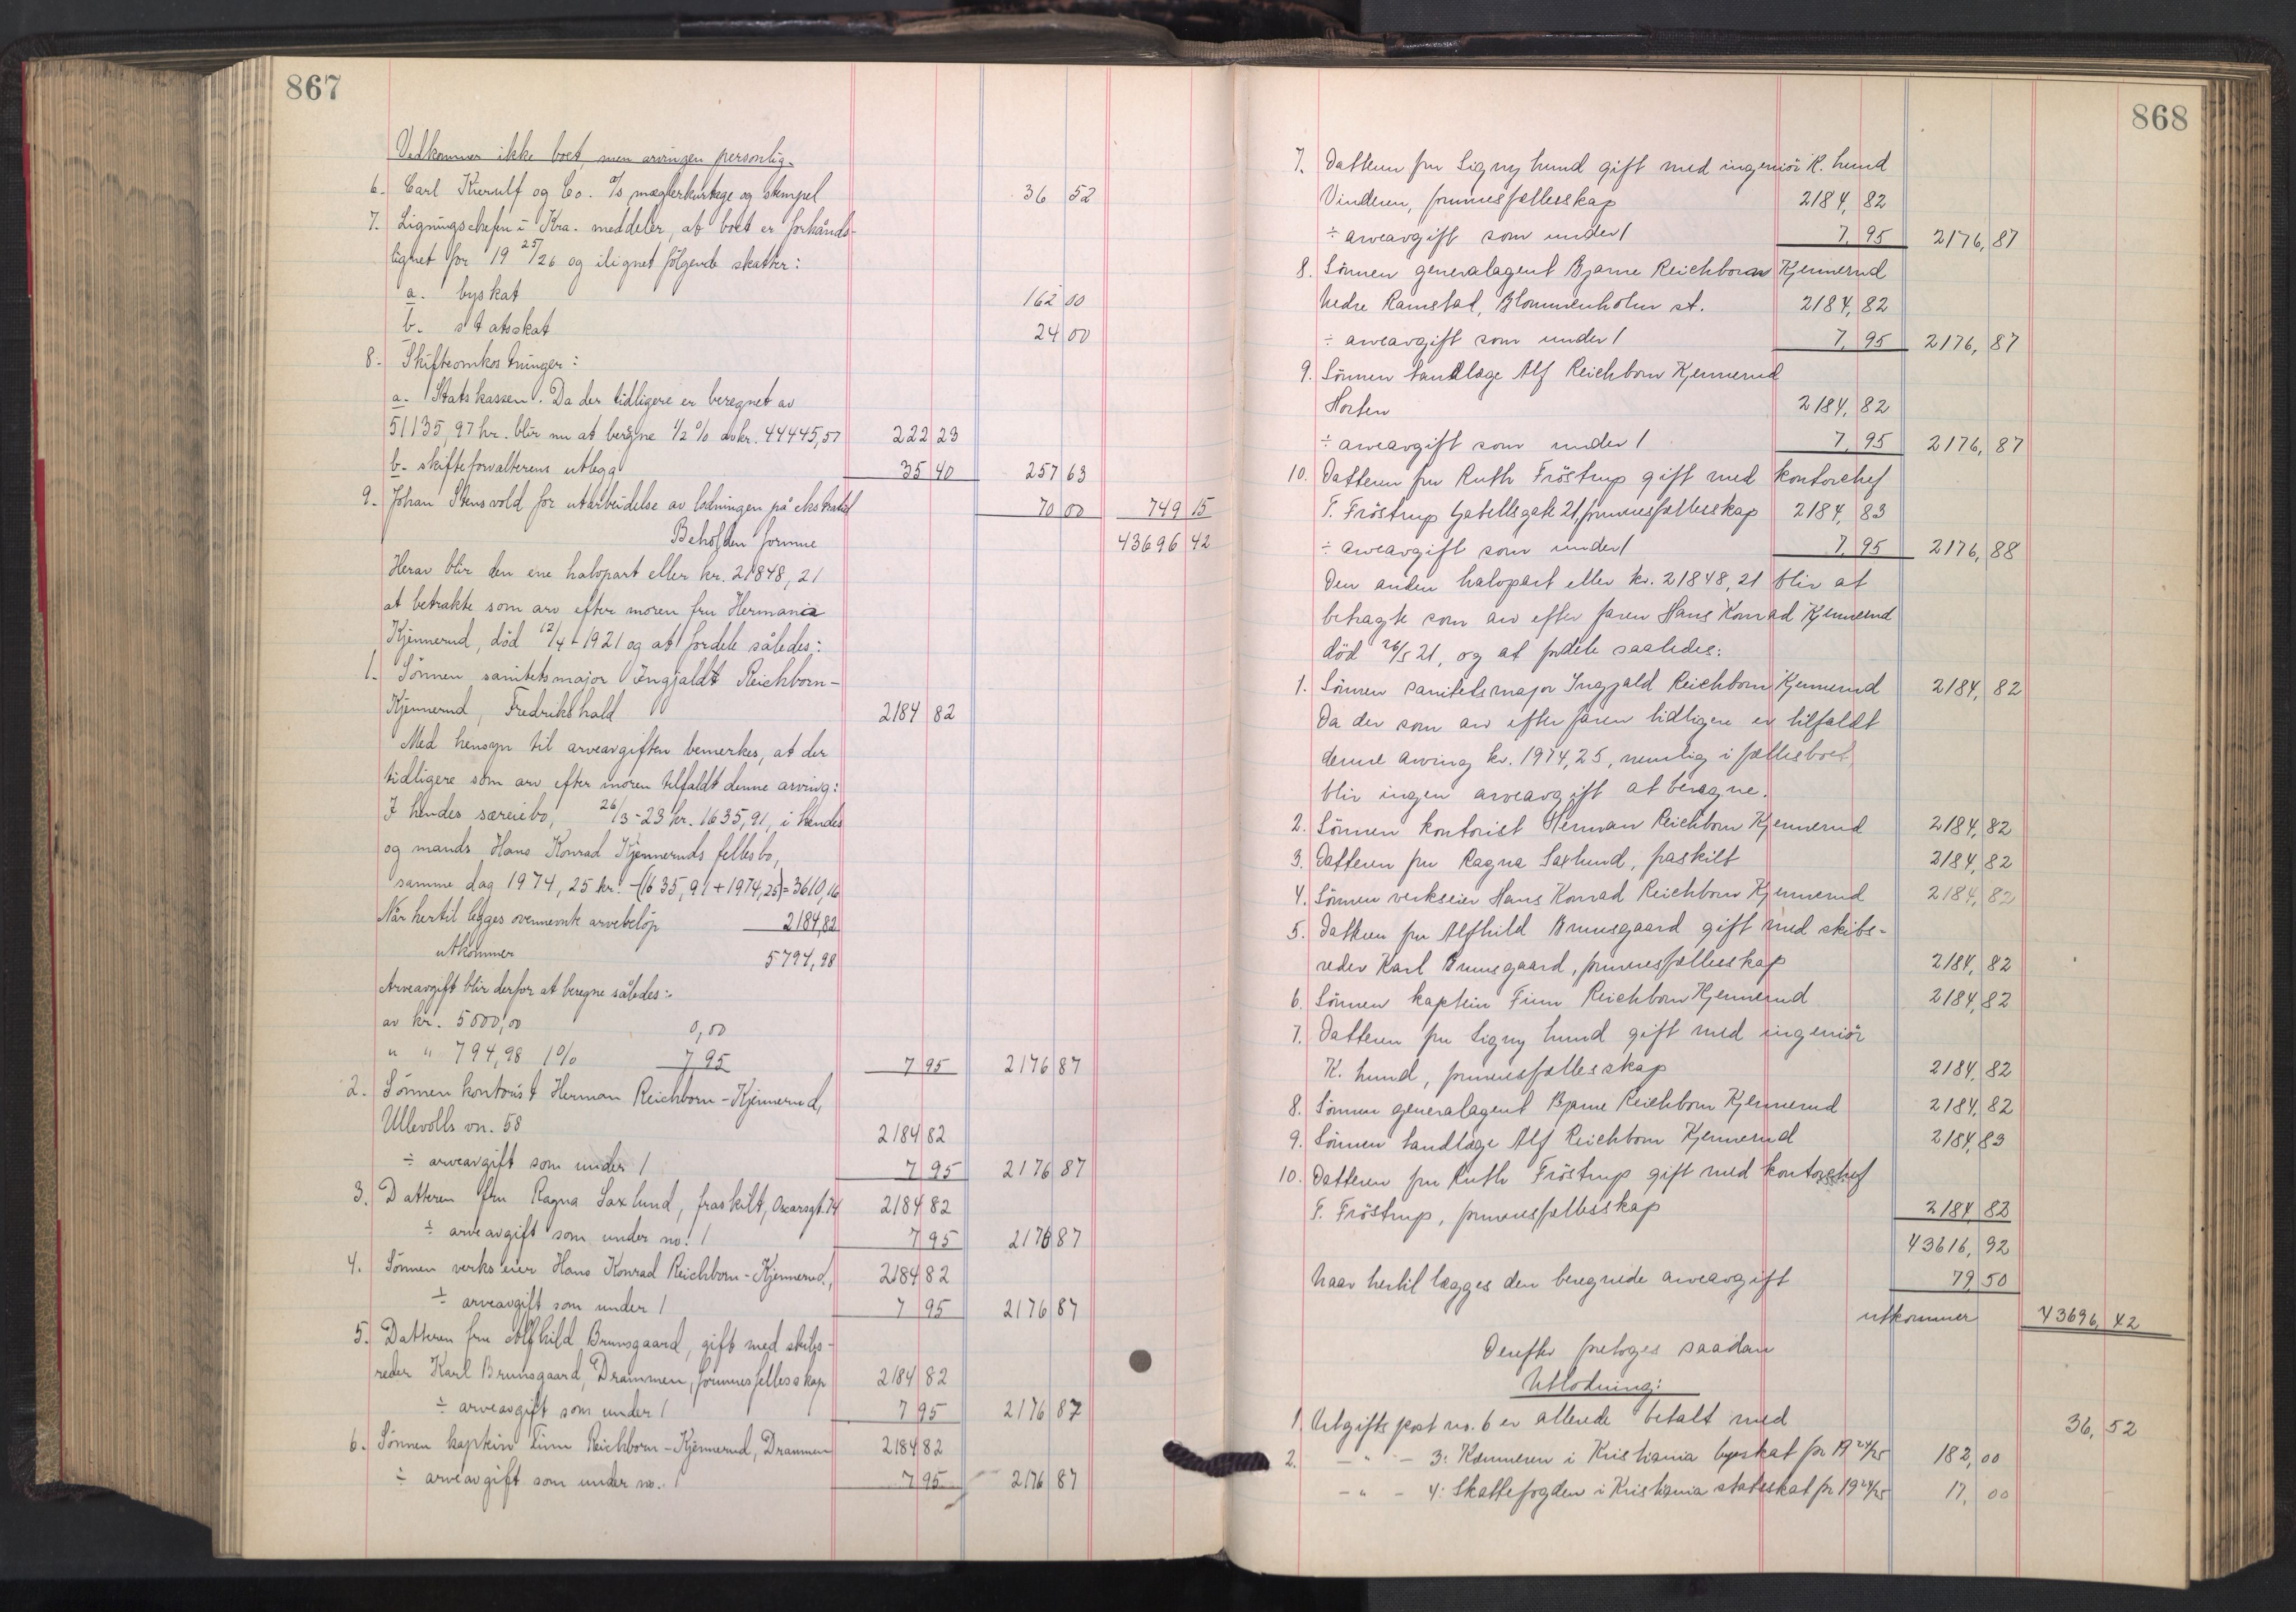 867
Vedkommer ikke boet, men arvingen personlig.
6. Carl Kierulf og Co. A/s, mæglerkurtage og stempel 36 52
7. Ligningschefen i Kra. meddeler, at boet er forhånds-
lignet for 19 25/26 og ilignet følgende skatter:
a. byskat 162 00
b. statsskat 24 00
8. Skifteomkostninger:
a. Statskassen. Da der tidligere er beregnet av
51135,97 kr. blir nu at beregne 1/2 % av kr. 44445,57 222 23
b. skifteforvalterens utlegg 35 40 257 63
9. Johan Stensvold for utarbeidelse av lodningen på ekstratid 70 00 749 15
Beholden formue 43696 42
Herav blir den ene halvpart eller kr. 21848,21
at betrakte som arv efter moren fru Hermania
Kjennerud, död 12/4-1921 og at fordele således:
1. Sönnen sanitetsmajor Ingjaldt Reichborn-
Kjennerud, Fredrikshald 2184 82
Med hensyn til arveavgiften bemerkes, at der
tidligere som arv efter moren tilfaldt denne arving:
I hendes særeiebo, 26/3-23 kr. 1635,91, i hendes
og mands Hans Konrad Kjenneruds fellesbo,
samme dag 1974,25 kr. -(1635,91+1974,25)=3610,16
Når hertil legges ovennevnte arvebelöp 2184,82
utkommer 5794,98
Arveavgift blir derfor at beregne således:
av kr. 5000,00 0,00
" " 794,98 1% 7 95 7 95 2176 87
2. Sönnen kontorist Herman Reichborn-Kjennerud,
Ullevolls vn. 58 2184 82
÷ arveavgift som under 1 7 95 2176 87
3. Datteren fru Ragna Saxlund, fraskilt, Oscarsgt. 74 2184 82
÷ arveavgift som under no. 1 7 95 2176 87
4. Sönnen verkseier Hans Konrad Reichborn-Kjennerud, 2184 82
÷ arveavgift som under 1 7 95 2176 87
5. Datteren fru Alfhild Brunsgaard, gift med skibs-
reder Karl Brunsgaard, Drammen, formuesfellesskap 2184 82
÷ arveavgift som under 1 7 95 2176 87
6. Sönnen kaptein Finn Reichborn-Kjennerud, Drammen 2184 82
÷ arveavgift som under no. 1 7 95 2176 87
868
7. Datteren fru Signy Lund gift med ingeniör K. Lund
Vinderen, formuesfællesskap 2184, 82
÷ arveavgift som under 1 7, 95 2176, 87
8. Sönnen generalagent Bjarne Reichborn Kjennerud
Nedre Ramstad, Blommenholm st. 2184, 82
÷ arveavgift som under 1 7, 95 2176, 87
9. Sönnen tandlæge Alf Reichborn Kjennerud
Horten 2184, 82
÷ arveavgift som under 1 7, 95 2176, 87
10. Datteren fru Ruth Fröstrup gift med kontorchef
T. Fröstrup Gabelsgate 21, formuesfællesskap 2184, 83
÷ arveavgift som under 1 7, 95 2176, 88
Den anden halvpart eller kr. 21848,21 blir at
betragte som arv efter faren Hans Konrad Kjennerud
död 26/5 21, og at fordele saaledes:
1. Sönnen sanitetsmajor Ingjald Reichborn Kjennerud 2184, 82
Da der som arv efter faren tidligere er tilfaldt
denne arving kr. 1974,25, nemlig i fællesboet,
blir ingen arveavgift at beregne.
2. Sönnen kontorist Herman Reichborn Kjennerud 2184, 82
3. Datteren fru Ragna Saxlund, fraskilt 2184, 82
4. Sönnen verkseier Hans Konrad Reichborn Kjennerud 2184, 82
5. Datteren fru Alfhild Brunsgaard gift med skibs-
reder Karl Brunsgaard, formuesfællesskap 2184, 82
6. Sönnen kaptein Finn Reichborn Kjennerud 2184, 82
7. Datteren fru Signy Lund gift med ingeniör
K. Lund, formuesfællesskap 2184, 82
8. Sönnen generalagent Bjarne Reichborn Kjennerud 2184, 82
9. Sönnen tandlæge Alf Reichborn Kjennerud 2184, 83
10. Datteren fru Ruth Fröstrup gift med kontorchef
T. Fröstrup, formuesfællesskap 2184, 83
43616, 92
Naar hertil lægges den beregnede arveavgift 79, 50
utkommer 43696, 42
Derefter foretoges saadan
Utlodning:
1. Utgifts post no. 6 er allerede betalt med 36, 52
2. - " - 3: Kemneren i Kristiania byskat for 19 24/25 182, 00
- " - 4: Skattefogden i Kristiania statsskat for 19 24/25 17, 00